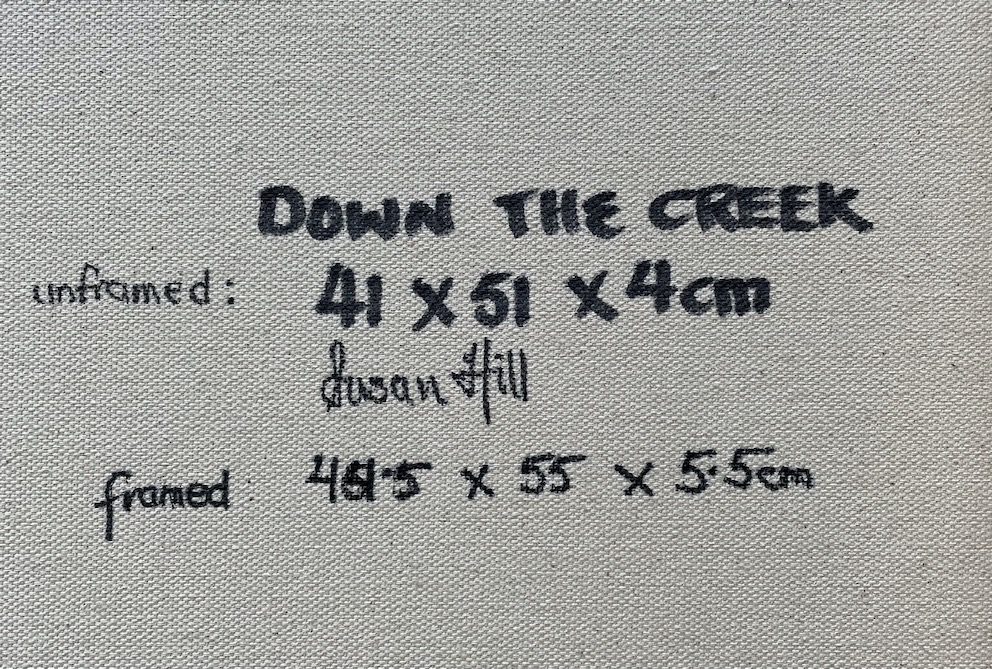 DOWN THE CREEK
unframed: 41 x 51 x 4cm
Susan Hill
framed: x 55 x 5.5cm